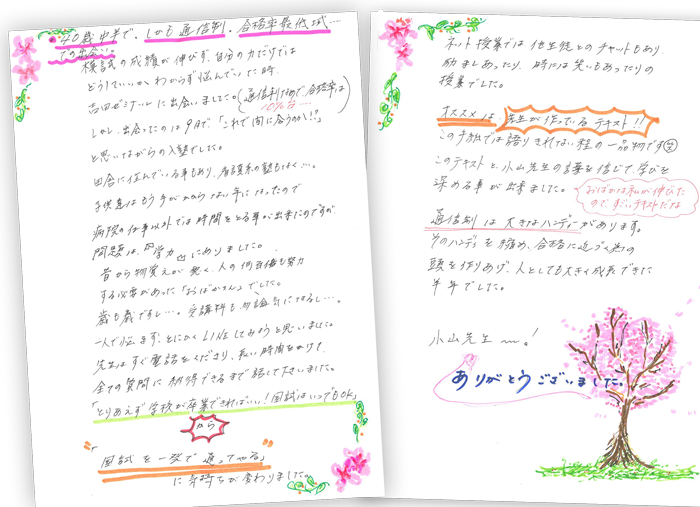 40歳中半で、しかも通信制、合格率最低域…
での出会い
模試の成績が伸びず、自分の力だけでは
どうしていいかわからず悩んでいた時、
吉田ゼミナールに出会いました。(通信制なので、合格率は
10%台…
しかし、出会ったのは9月で、「これで間に合うのか!?」
と思いながらの入塾でした。
田舎に住んでいる事もあり、看護系の塾もなく…。
子供達はもう手がかからない年になったので
病院の仕事以外では時間をとる事が出来たのですが、
問題は、"学力"にありました。
昔から物覚えが悪く、人の何百倍も努力
する必要があった「おばかさん」でした。
歳も歳ですし…。受講料も勿論気になるし…。
一人で悩まず、とにかくLINEしてみようと思いました。
先生はすぐ電話をくださり、長い時間をかけて、
全ての質問に納得できるまで話して下さいました。
「とりあえず学校が卒業できればいい!国試はいつでもOK」
から
"国試を一発で通ってやる"
に気持ちが変わりました。
ネット授業では他生徒とのチャットもあり、
励ましあったり、時には笑いもあったりの
授業でした。
オススメは、先生が作っているテキスト!!
この手紙では語りきれない程の一品物です
このテキストと、小山先生の言葉を信じて、学びを
深める事が出来ました。
おばかな私が伸びた
ので、すごいテキストだな
通信制は大きなハンディーがあります。
そのハンディを縮め、合格に近づく為の
頭を作りあげ、人としても大きく成長できた
半年でした。
小山先生〜!
ありがとうございました。